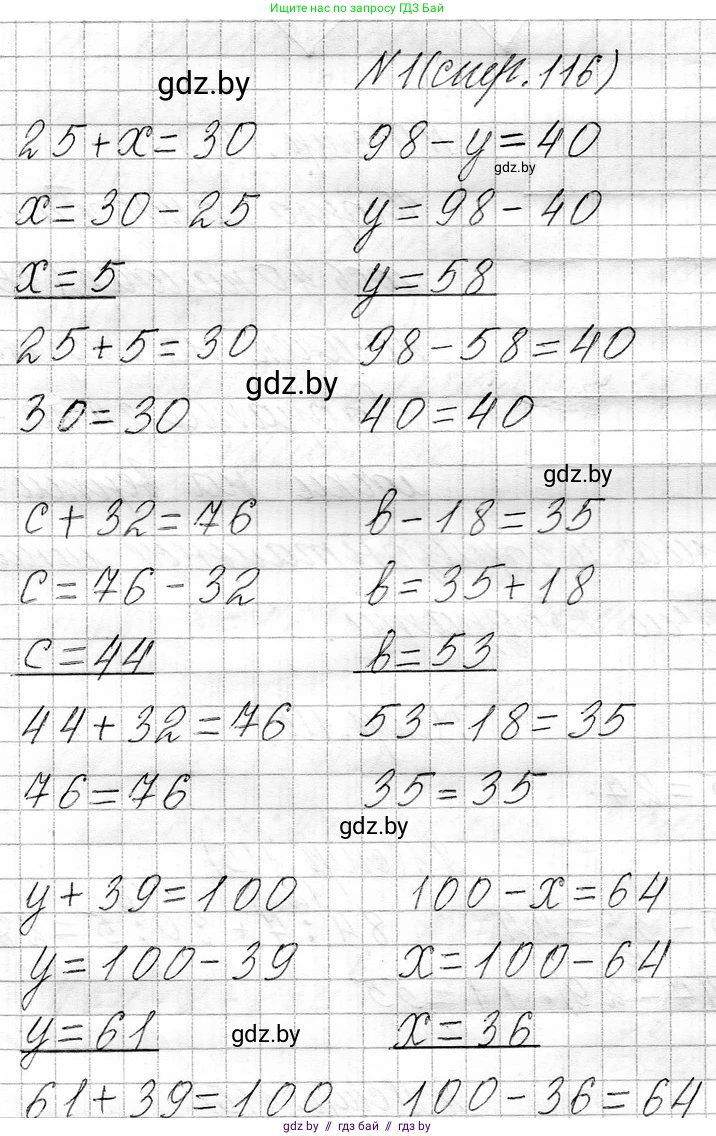 Ищите нас по запросу ГДЗ Бай
gdz.by
N 1(стр.116)
25+x=30 98-y=40
gdz.by
x=30-25 y=98-40
x=5 y=58
25+5=30 98-58=40
gdz.by
30=30 40=40
gdz.by
c+32=76 в-18=35
c=76-32 в=35+18
c=44 в=53
44+32=76 53-18=35
76=76 35=35
gdz.by
y+39=100 100-x=64
y=100-39 x=100-64
y=61 x=36
gdz.by
61+39=100 100-36=64
gdz.by // гдз бай // gdz by